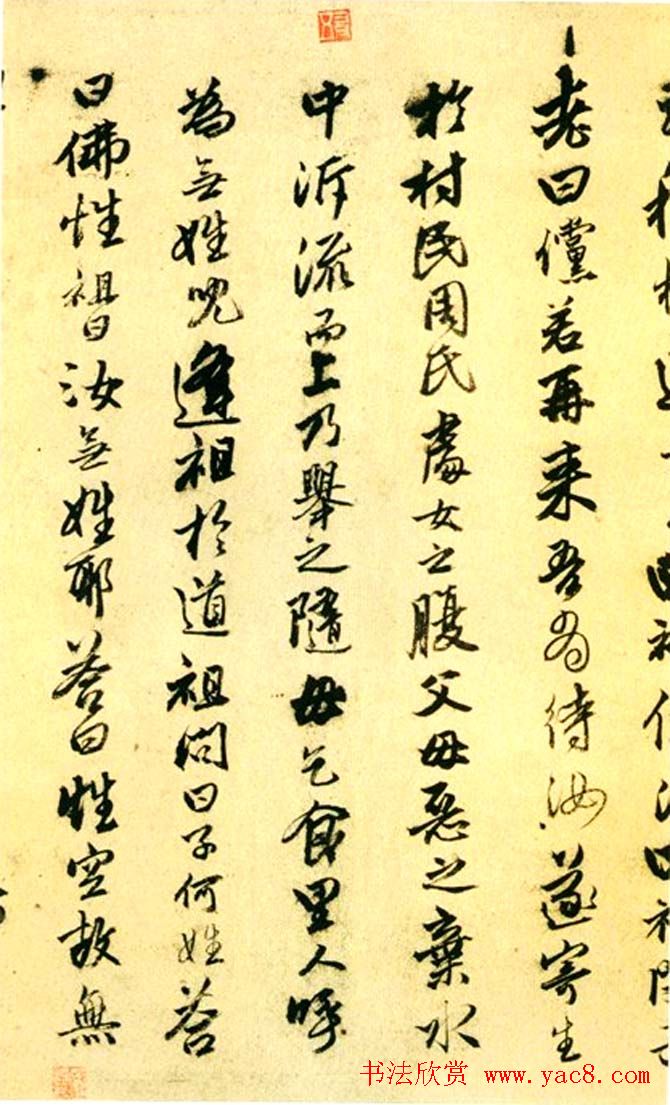 老曰儻若再来吾为待汝遂寄生
於村民周氏處女之腹父母惡之棄水
中泝流而上乃舉之隨母乞食里人呼
為无姓兒逢祖於道祖问曰子何姓答
曰佛性祖曰汝无姓耶答曰性空故無
书法欣赏 www.yac8.com